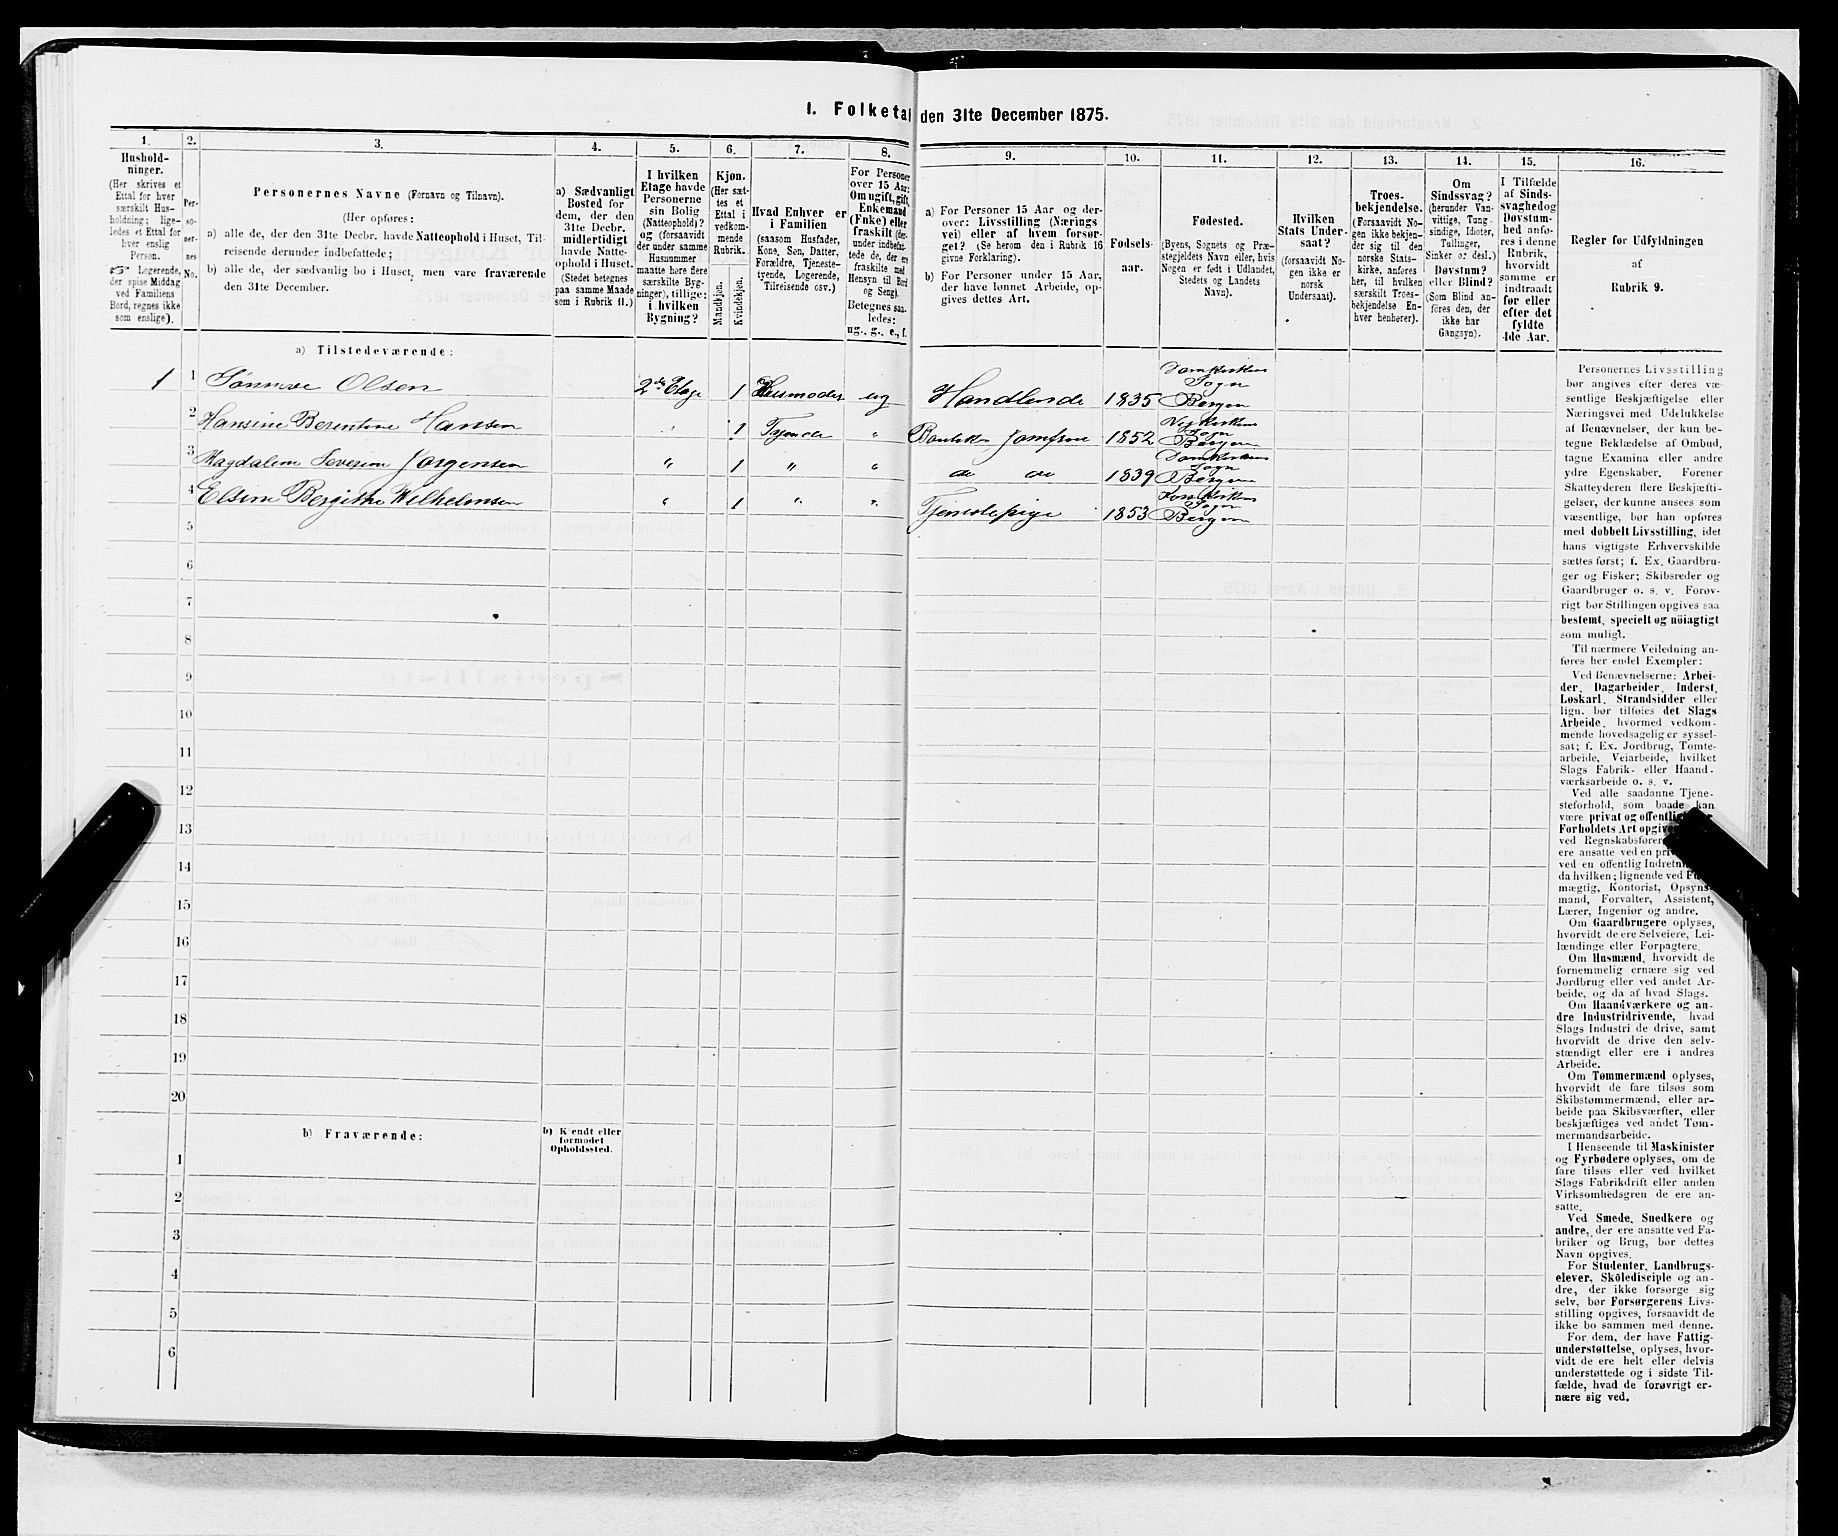 1. Folketal den 31te December 1875.
1.
Hushold-
ninger.
(Her skrives et
Ettal for hver
særskilt Hus-
holdning; lige-
ledes et Ettal for
hver enslig
Person.
☞ Logerende,
der spise Middag
ved Familiens
Bord, regnes ikke
som enslige).
2.
Per-
so-
ner-
nes
No.
3.
Personernes Navne (Fornavn og Tilnavn).
(Her opføres:
a) alle de, der den 31te Decbr. havde Natteophold i Huset, Til-
reisende derunder indbefattede;
b) alle de, der sædvanlig bo i Huset, men vare fraværende
den 31te December.
4.
a) Sædvanligt
Bosted for
dem, der den
31te Decbr.
midlertidigt
havde Natte-
ophold i Huset.
(Stedet betegnes
paa samme Maade
som i Rubrik 11.)
5.
I hvilken
Etage havde
Personerne
sin Bolig
(Natteophold)?
og (forsaavidt
der under samme
Husnummer
maatte høre flere
særskilte Byg-
ninger), tillige:
i hvilken
Bygning?
6.
Kjøn.
(Her sæt-
tes et
Ettal i
vedkom-
mende
Rubrik.
Mandkjøn.
Kvindekjøn.
7.
Hvad Enhver er
i Familien
(saasom Husfader,
Kone, Søn, Datter,
Forældre, Tjeneste-
tyende, Logerende,
Tilreisende osv.)
8.
For Personer
over 15 Aar:
Om ugift, gift,
Enkemand
(Enke) eller
fraskilt (der-
under indbefat-
tede de, der ere
fraskilte med
Hensyn til Bord
og Seng).
Betegnes saa-
ledes:
ug., g., e., f.
9.
a) For Personer 15 Aar og der-
over: Livsstilling (Nærings
vei) eller af hvem forsør-
get? (Se herom den i Rubrik 16
givne Forklaring).
b) For Personer under 15 Aar,
der have lønnet Arbeide, op-
gives dettes Art.
10.
Fødsels-
aar.
11.
Fødested.
(Byens, Sognets og Præ-
stegjeldets Navn eller, hvis
Nogen er født i Udlandet,
Stedets og Landets
Navn).
12.
Hvilken
Stats Under-
saat?
(forsaavidt No-
gen ikke er
norsk
Undersaat).
13.
Troes-
bekjendelse.
(Forsaavidt No-
gen ikke bekjen-
der sig til den
norske Stats-
kirke, anføres
her, til hvilken
særskilt Troes-
bekjendelse En-
hver henhører).
14.
Om
Sindssvag?
(herunder Van-
vittige, Tung-
sindige, Idioter,
Tullinger,
Sinker o: desl.)
Døvstum?
eller Blind?
(Som Blind an-
føres den, der
ikke har
Gangsyn).
15.
I Tilfælde
af Sinds-
svaghed og
Døvstum-
hed anfø-
res i denne
Rubrik,
hvorvidt
samme er
indtraadt
før eller
efter det
fyldte
4de Aar.
16.
Regler for Udfyldningen
af
Rubrik 9.
a) Tilstedeværende:
1 1 Sønneve Olsen 2de Etage 1 Husmoder ug Handlende 1835 Domkirkens Sogn Bergen
2 Hansine Berentine Hansen 1 Tjende " Jomfrue 1852 Sogn Bergen
3 Magdalene Severine Jørgensen " 1 " " do do 1839 Domkirkens Sogn Bergen
4 Elsine Bergithe Wilhelmsen " 1 " " Tjenestepige 1853 Korskirkens Sogn Bergen
5
6
7
8
9
10
11
12
13
14
15
16
17
18
19
20
b) Fraværende:
b) Kjendt eller
formodet
Opholdssted.
1
2
3
4
5
6
Personernes Livsstilling
bør angives efter deres væ-
sentlige Beskjæftigelse eller
Næringsvei med Udelukkelse
af Benævnelser, der kun be-
tegne Beklædelse af Ombud,
tagne Examina eller andre
ydre Egenskaber. Forener
Skatteyderen flere Beskjæfti-
gelser, der kunne ansees som
væsentlige, bør han opføres
med dobbelt Livsstilling, idet
hans vigtigste Erhvervskilde
sættes først; f. Ex. Gaardbru-
ger og Fisker; Skibsreder og
Gaardbruger o. s. v. Forøv-
rigt bør Stillingen opgives saa
bestemt, specielt og nöiagtigt
som muligt.
Til nærmere Veiledning an-
føres her endel Exempler:
Ved Benævnelserne: Arbei-
der, Dagarbeider, Inderst,
Løskarl, Strandsidder eller
lign. bør tilføies det Slags
Arbeide, hvormed vedkom-
mende hovedsagelig er syssel-
sat; f. Ex. Jordbrug, Tomte-
arbeide, Veiarbeide, hvilket
Slags Fabrik- eller Haand-
værksarbeide o. s. v.
Ved alle saadanne Tjene-
steforhold, som baade kan
være privat og offentlig
Forholdets Art opgives
ved Regnskabsfører
ere ansatte ved en
ved en offentlig Indretning
da hvilken; lignende ved
mægtig, Kontorist, Opsyns-
mand, Forvalter, Assistent,
Lærer, Ingeniør og andre.
Om Gaardbrugere oplyses,
hvorvidt de ere Selveiere, Lei-
lændinge eller Forpagtere.
Om Husmænd, hvorvidt de
fornemmelig ernære sig ved
Jordbrug eller ved andet Ar-
beide, og da af hvad Slags.
Om Haandværkere og an-
dre Industridrivende, hvad
Slags Industri de drive, samt
hvorvidt de drive den selv-
stændigt eller ere i andres
Arbeide.
Om Tømmermænd oplyses,
hvorvidt de fare tilsøs som
Skibstømmermænd, eller ar-
beide paa Skibsværfter, eller
beskjæftiges ved andet Tøm-
mermandsarbeide.
I Henseende til Maskinister
og Fyrbødere oplyses, om de
fare tilsøs eller ved hvilket
Slags Fabrikdrift eller anden
Virksomhedsgren de ere an-
satte.
Ved Smede, Snedkere og
andre, der ere ansatte ved Fa-
briker og Brug, bør dettes
Navn opgives.
For Studenter, Landbrugs-
elever, Skoledisciple og an-
dre, der ikke forsørge sig
selv, bør Forsørgerens Livs-
stilling opgives, forsaavidt de
ikke bo sammen med denne.
For dem, der have Fattig-
understøttelse, oplyses, hvor-
vidt de ere helt eller delvis
understøttede og i sidste Til-
fælde, hvad de forøvrigt er-
nære sig ved.